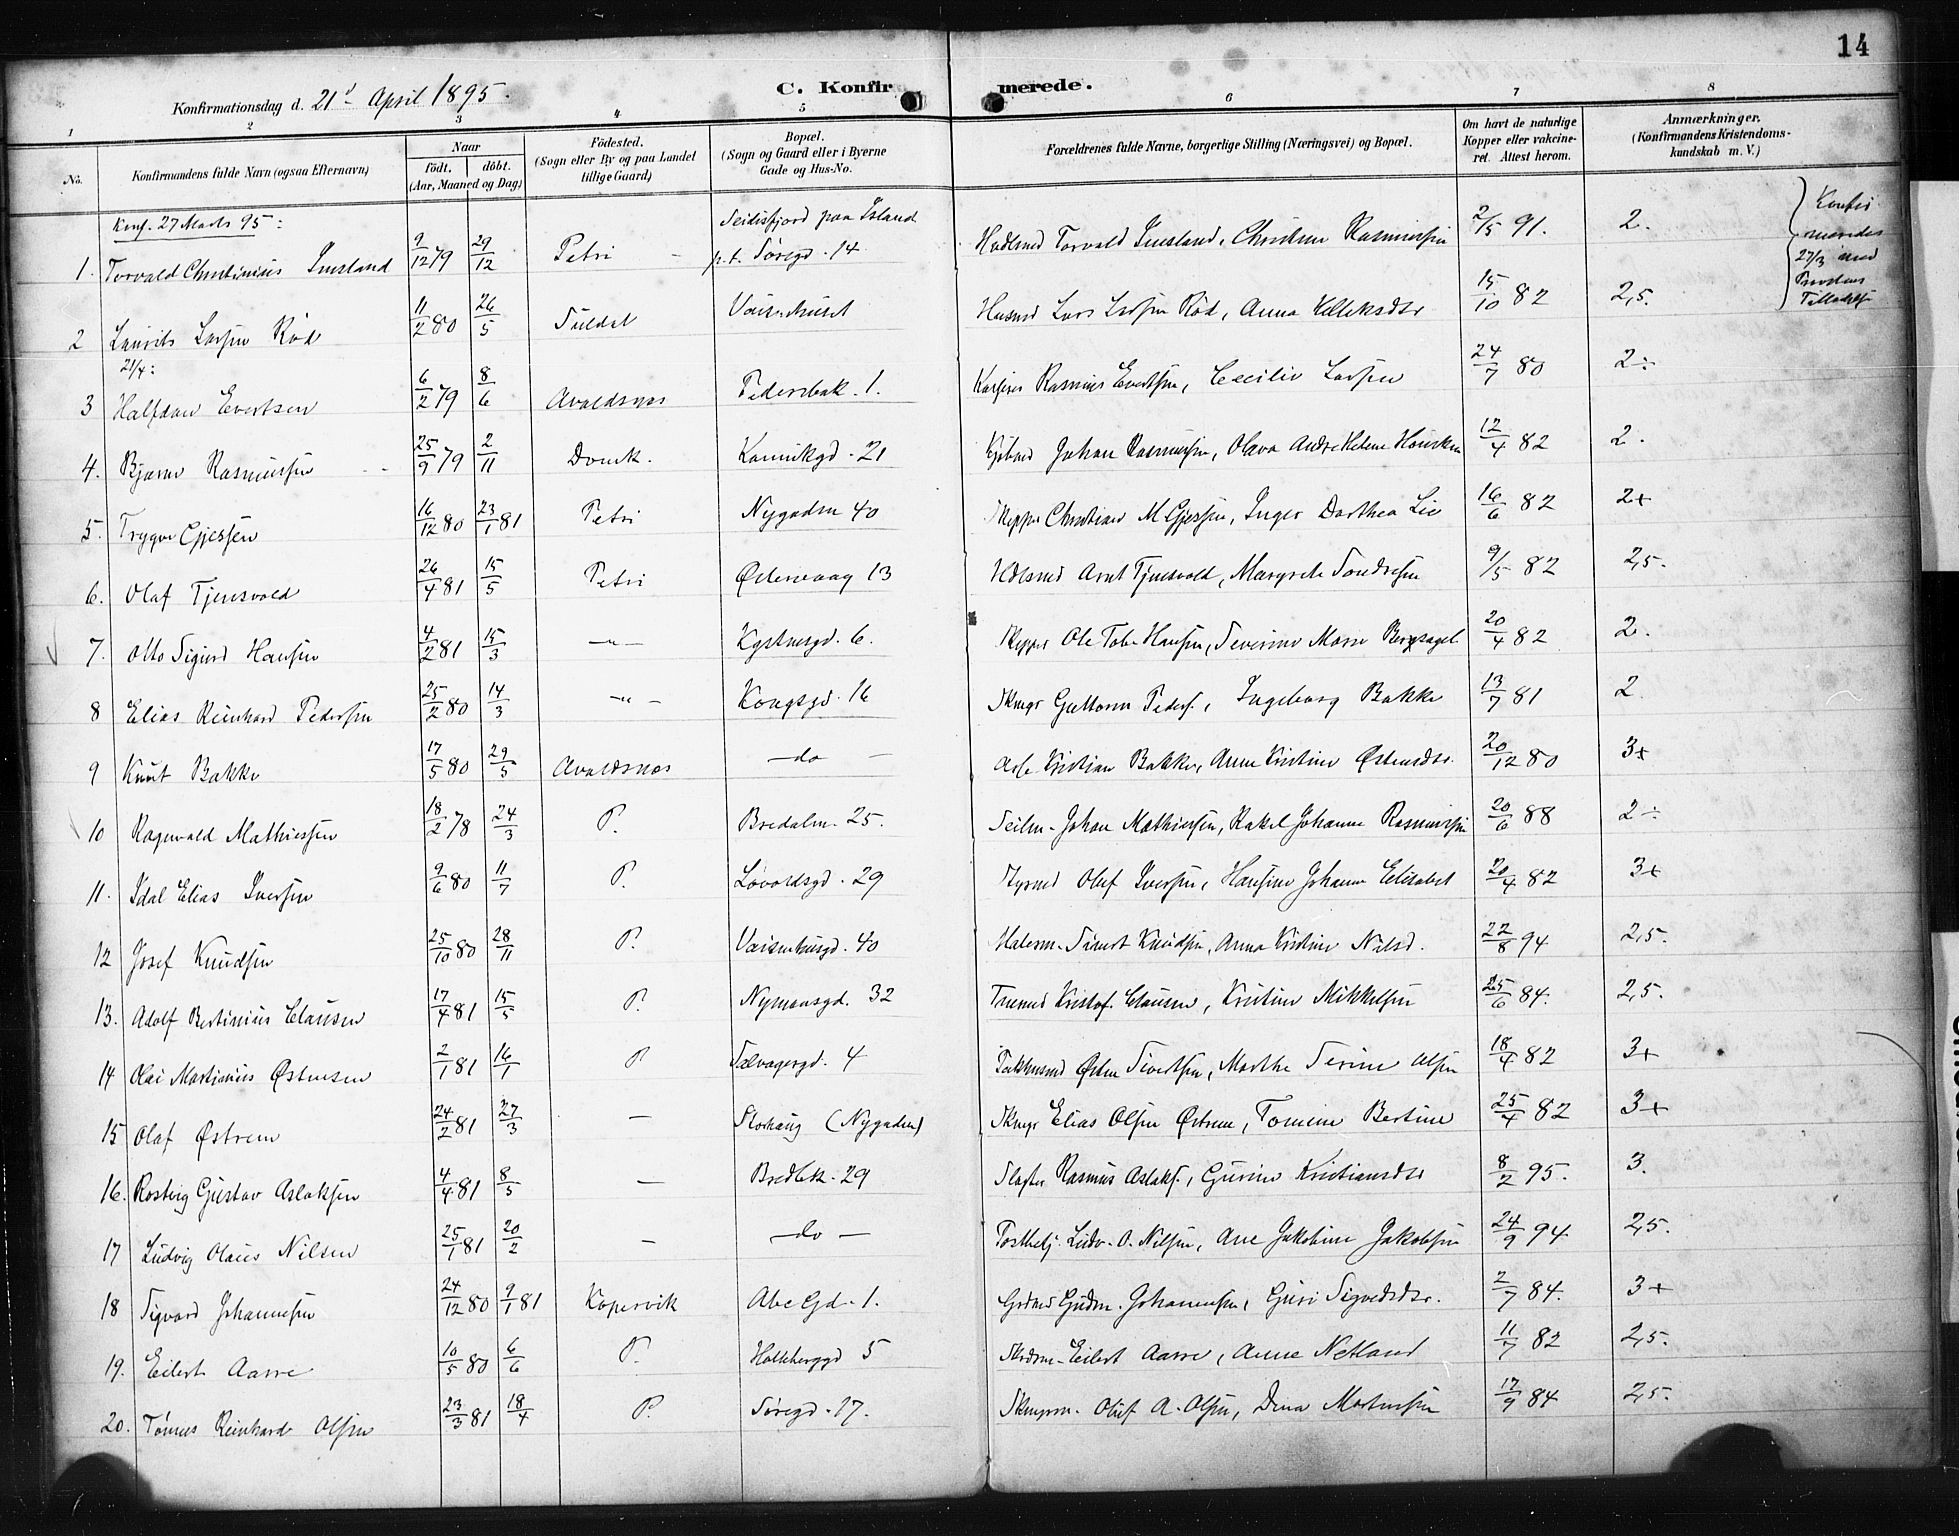 14
Konfirmationsdag d. 21d April 1895.
C. Konfirmerede.
1 2 3 4 5 6 7 8
No. Konfirmandens fulde Navn (ogsaa Efternavn) Naar født. døbt. (Aar, Maaned og Dag) Födested. (Sogn eller By og paa Landet tillige Gaard) Bopæl. (Sogn og Gaard eller i Byerne Gade og Hus-No. Forældrenes fulde Navne, borgerlige Stilling (Næringsvei) og Bopæl. Om havt de naturlige Kopper eller vakcineret. Attest herom. Anmærkninger. (Konfirmandens Kristendomskundskab m. V.)
Konf. 27 Marts 95:
1. Torvald Christinius Imsland 9/12 79 29/12 Petri Seidisfjord paa Island p.t. Søregd. 14 Torvald Imsland, Rasmussen 2/5 91. 2. Konfirmeredes 27/3 med Provstens Tilladelse
2 Laurits Larsen Rød 11/2 80 26/5 Suldal Vaisenhuset Husmd Lars Larsen Rød, Anna 15/10 82 2,5.
21/4:
3 Halfdan Evertsen 6/2 79 8/6 Avaldsnes Pedersbak. 1. Rasmus Evertsen, Cecilie Larsen 24/7 80 2÷
4. Bjarne Rasmussen 25/9 79 2/11 Domk. Kannikgd. 21 Johan Rasmussen, Olava Andre Helene 12/4 82 2.
5. Trygve Gjessen 16/12 80 23/1 81 Petri Nygaden 40 Skipper Christian M Gjessen, Inger Dorthea Lie 16/6 82 2+
6. Olaf Tjensvold 26/4 81 15/5 Petri Østervaag 13 Arnt Tjensvold, Margrete Tondresen 9/5 82 2,5.
7. Otto Sigurd Hansen 4/2 81 15/3 —"— Kystnesgd. 6. Skipper Ole Tob. Hansen, Severine Marie Bergsagel 20/4 82 2.
8 Elias Reinhard Pedersen 25/2 80 14/3 —"— Kongsgd. 16 Guttorm Peders., Ingeborg Bakke 13/7 81 2
9 Knut Bakke 17/5 80 29/5 Avaldsnes —do— Kristian Bakke, Anne Kristine Østensdtr. 20/12 80 3+
10 Ragnvald Mathiessen 18/2 78 24/3 P. Bredalm. 25. Seilm. Johan Mathiessen, Rakel Johanne Rasmussen 20/6 88 2÷
11. Idal Elias Iversen 9/6 80 11/7 P. Løvoldsgd. 29 Fyrmd Oluf Iversen, Hansine Johanne Elisabet 20/4 82 3+
12 Josef Knudsen 25/10 80 28/11 P. Vaisenhusgd. 40 Sivert Knudsen, Anna Kristine Nilsd. 22/8 94 2,5.
13. Adolf Bertinius Clausen 17/4 81 15/5 P. Nymansgd. 32 Kristof. Clausen, Kristine Mikkelsen 25/6 84. 2,5.
14 Olai Martinius Østensen 2/1 81 16/1 P Sølvagergd. 4 Østen Sivertsen, Marthe Serine Olsen 18/4 82 3+
15 Olaf Østrem 24/2 81 27/3 — Storhaug (Nygaden) Elias Olsen Østrem, Tomine Bertine 25/4 82 3+
16. Rostvig Gustav Aslaksen 4/4 81 8/5 — Bredbk. 29 Slagter Rasmus Aslaks., Gurine Kristiansdtr 8/2 95. 3.
17 Ludvig Olaus Nilsen 25/1 81 20/2 — —do— Ludv. O. Nilsen, Ane Jakobine Jakobsen 24/9 94 2,5.
18 Sigvard Johannesen 24/12 80 9/1 81 Kopervik Abc Gd. 1. Gudm. Johannesen, Guri Sigvedsdtr. 2/7 84. 3+
19. Eilert Aarre 10/5 80 6/6 P. Holbberggd 5 Eilert Aarre, Anne Netland 11/7 82 2,5.
20. Tønnes Reinhard Olsen 23/3 81 18/4 P. Søregd. 27. Oluf A. Olsen, Dina Martinsen 17/9 84 2,5.